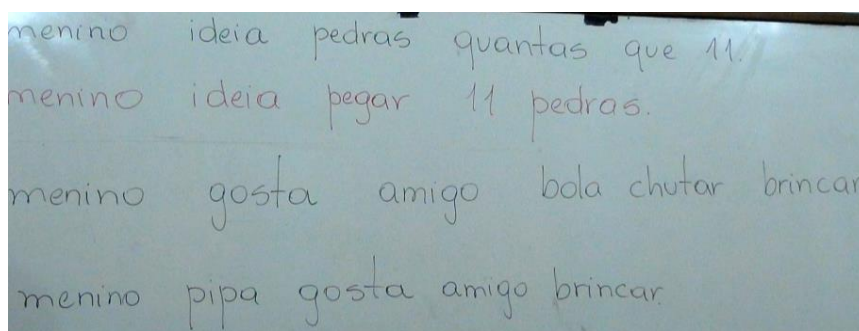 menino ideia pedras quantas que 11.
menino ideia pegar 11 pedras.
menino gosta amigo bola chutar brincar
menino pipa gosta amigo brincar.